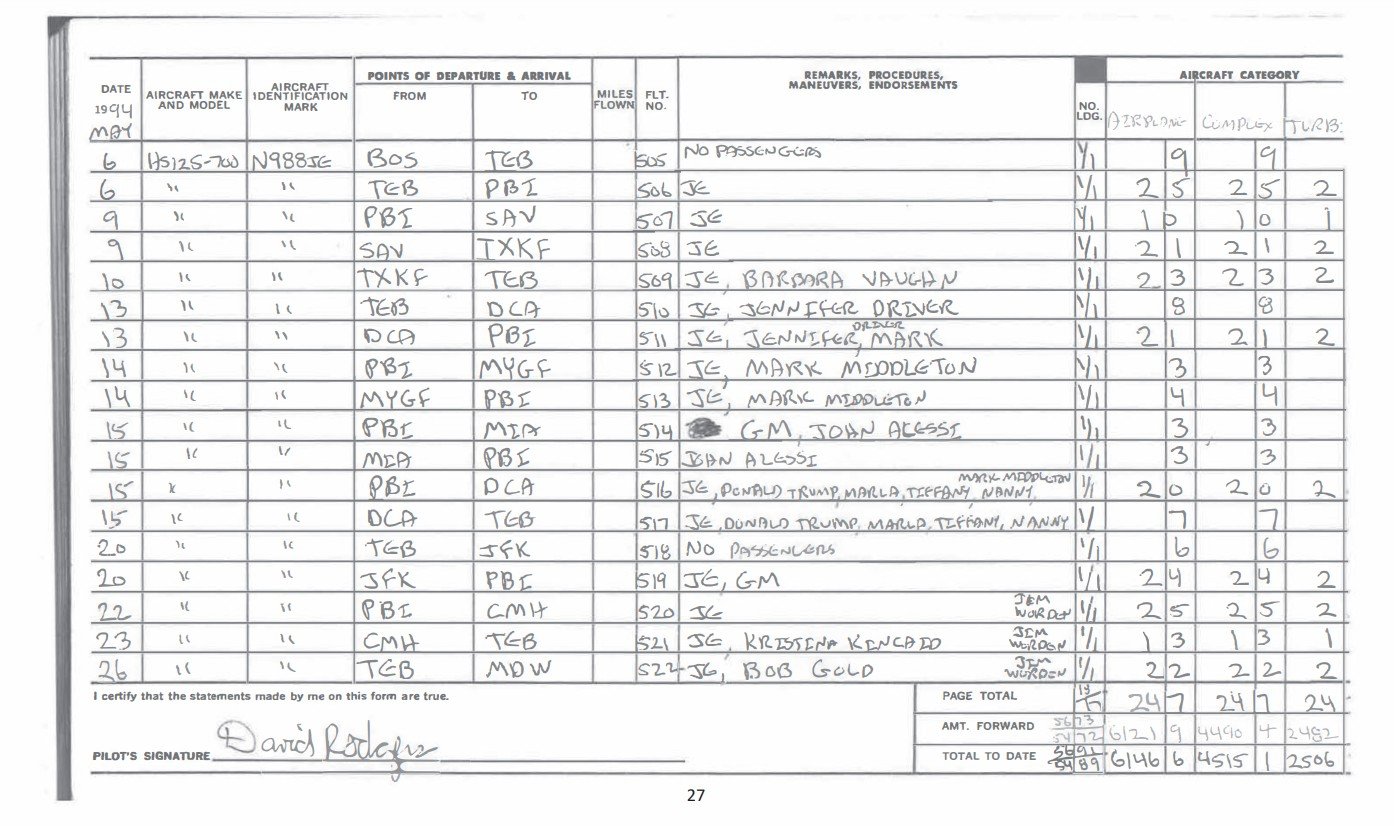 DATE 1994 MAY AIRCRAFT MAKE AND MODEL AIRCRAFT IDENTIFICATION MARK POINTS OF DEPARTURE & ARRIVAL FROM TO MILES FLOWN FLT. NO. REMARKS, PROCEDURES, MANEUVERS, ENDORSEMENTS NO. LDG. AIRCRAFT CATEGORY AIRPLANE COMPLEX TURB.
6 HS125-700 N988JE BOS TEB 505 NO PASSENGERS 1/1 9 9
6 " " TEB PBI 506 JE 1/1 2 5 2 5 2
9 " " PBI SAV 507 JE 1/1 1 0 1 0 1
9 " " SAV TXKF 508 JE 1/1 2 1 2 1 2
10 " " TXKF TEB 509 JE, BARBARA VAUGHN 1/1 2 3 2 3 2
13 " " TEB DCA 510 JE, JENNIFER DRIVER 1/1 8 8
13 " " DCA PBI 511 JE, JENNIFER DRIVER, MARK 1/1 2 1 2 1 2
14 " " PBI MYGF 512 JE, MARK MIDDLETON 1/1 3 3
14 " " MYGF PBI 513 JE, MARK MIDDLETON 1/1 4 4
15 " " PBI MIA 514 GM, JOHN ALESSI 1/1 3 3
15 " " MIA PBI 515 JOHN ALESSI 1/1 3 3
15 " " PBI DCA 516 JE, DONALD TRUMP, MARLA, TIFFANY, NANNY, MARK MIDDLETON 1/1 2 0 2 0 2
15 " " DCA TEB 517 JE, DONALD TRUMP, MARLA, TIFFANY, NANNY 1/ 7 7
20 " " TEB JFK 518 NO PASSENGERS 1/1 6 6
20 " " JFK PBI 519 JE, GM 1/1 2 4 2 4 2
22 " " PBI CMH 520 JE JIM WORDEN 1/1 2 5 2 5 2
23 " " CMH TEB 521 JE, KRISTINA KINCAID JIM WORDEN 1/1 1 3 1 3 1
26 " " TEB MDW 522 JE, BOB GOLD JIM WORDEN 1/1 2 2 2 2 2
I certify that the statements made by me on this form are true. PAGE TOTAL 24 7 24 7 24
AMT. FORWARD 5673 5472 6121 9 4490 4 2482
PILOT'S SIGNATURE David Rodgers TOTAL TO DATE 5691 5489 6146 6 4515 1 2506
27